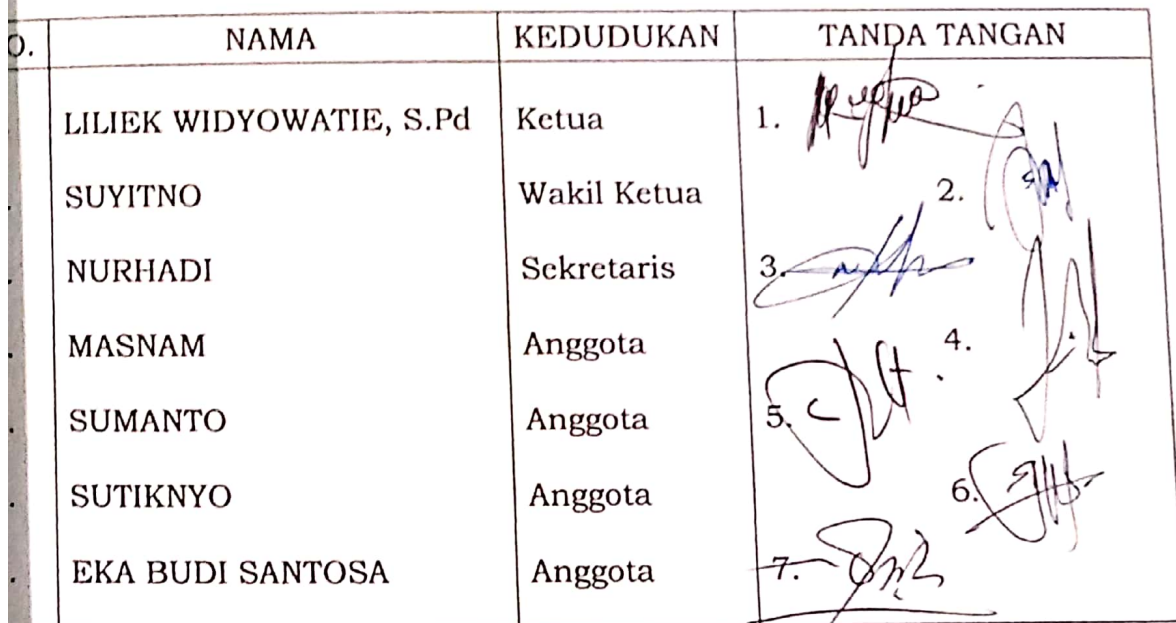 O. NAMA KEDUDUKAN TANDA TANGAN
LILIEK WIDYOWATIE, S.Pd Ketua 1.
SUYITNO Wakil Ketua 2.
NURHADI Sekretaris 3.
MASNAM Anggota 4.
SUMANTO Anggota 5.
SUTIKNYO Anggota 6.
EKA BUDI SANTOSA Anggota 7.